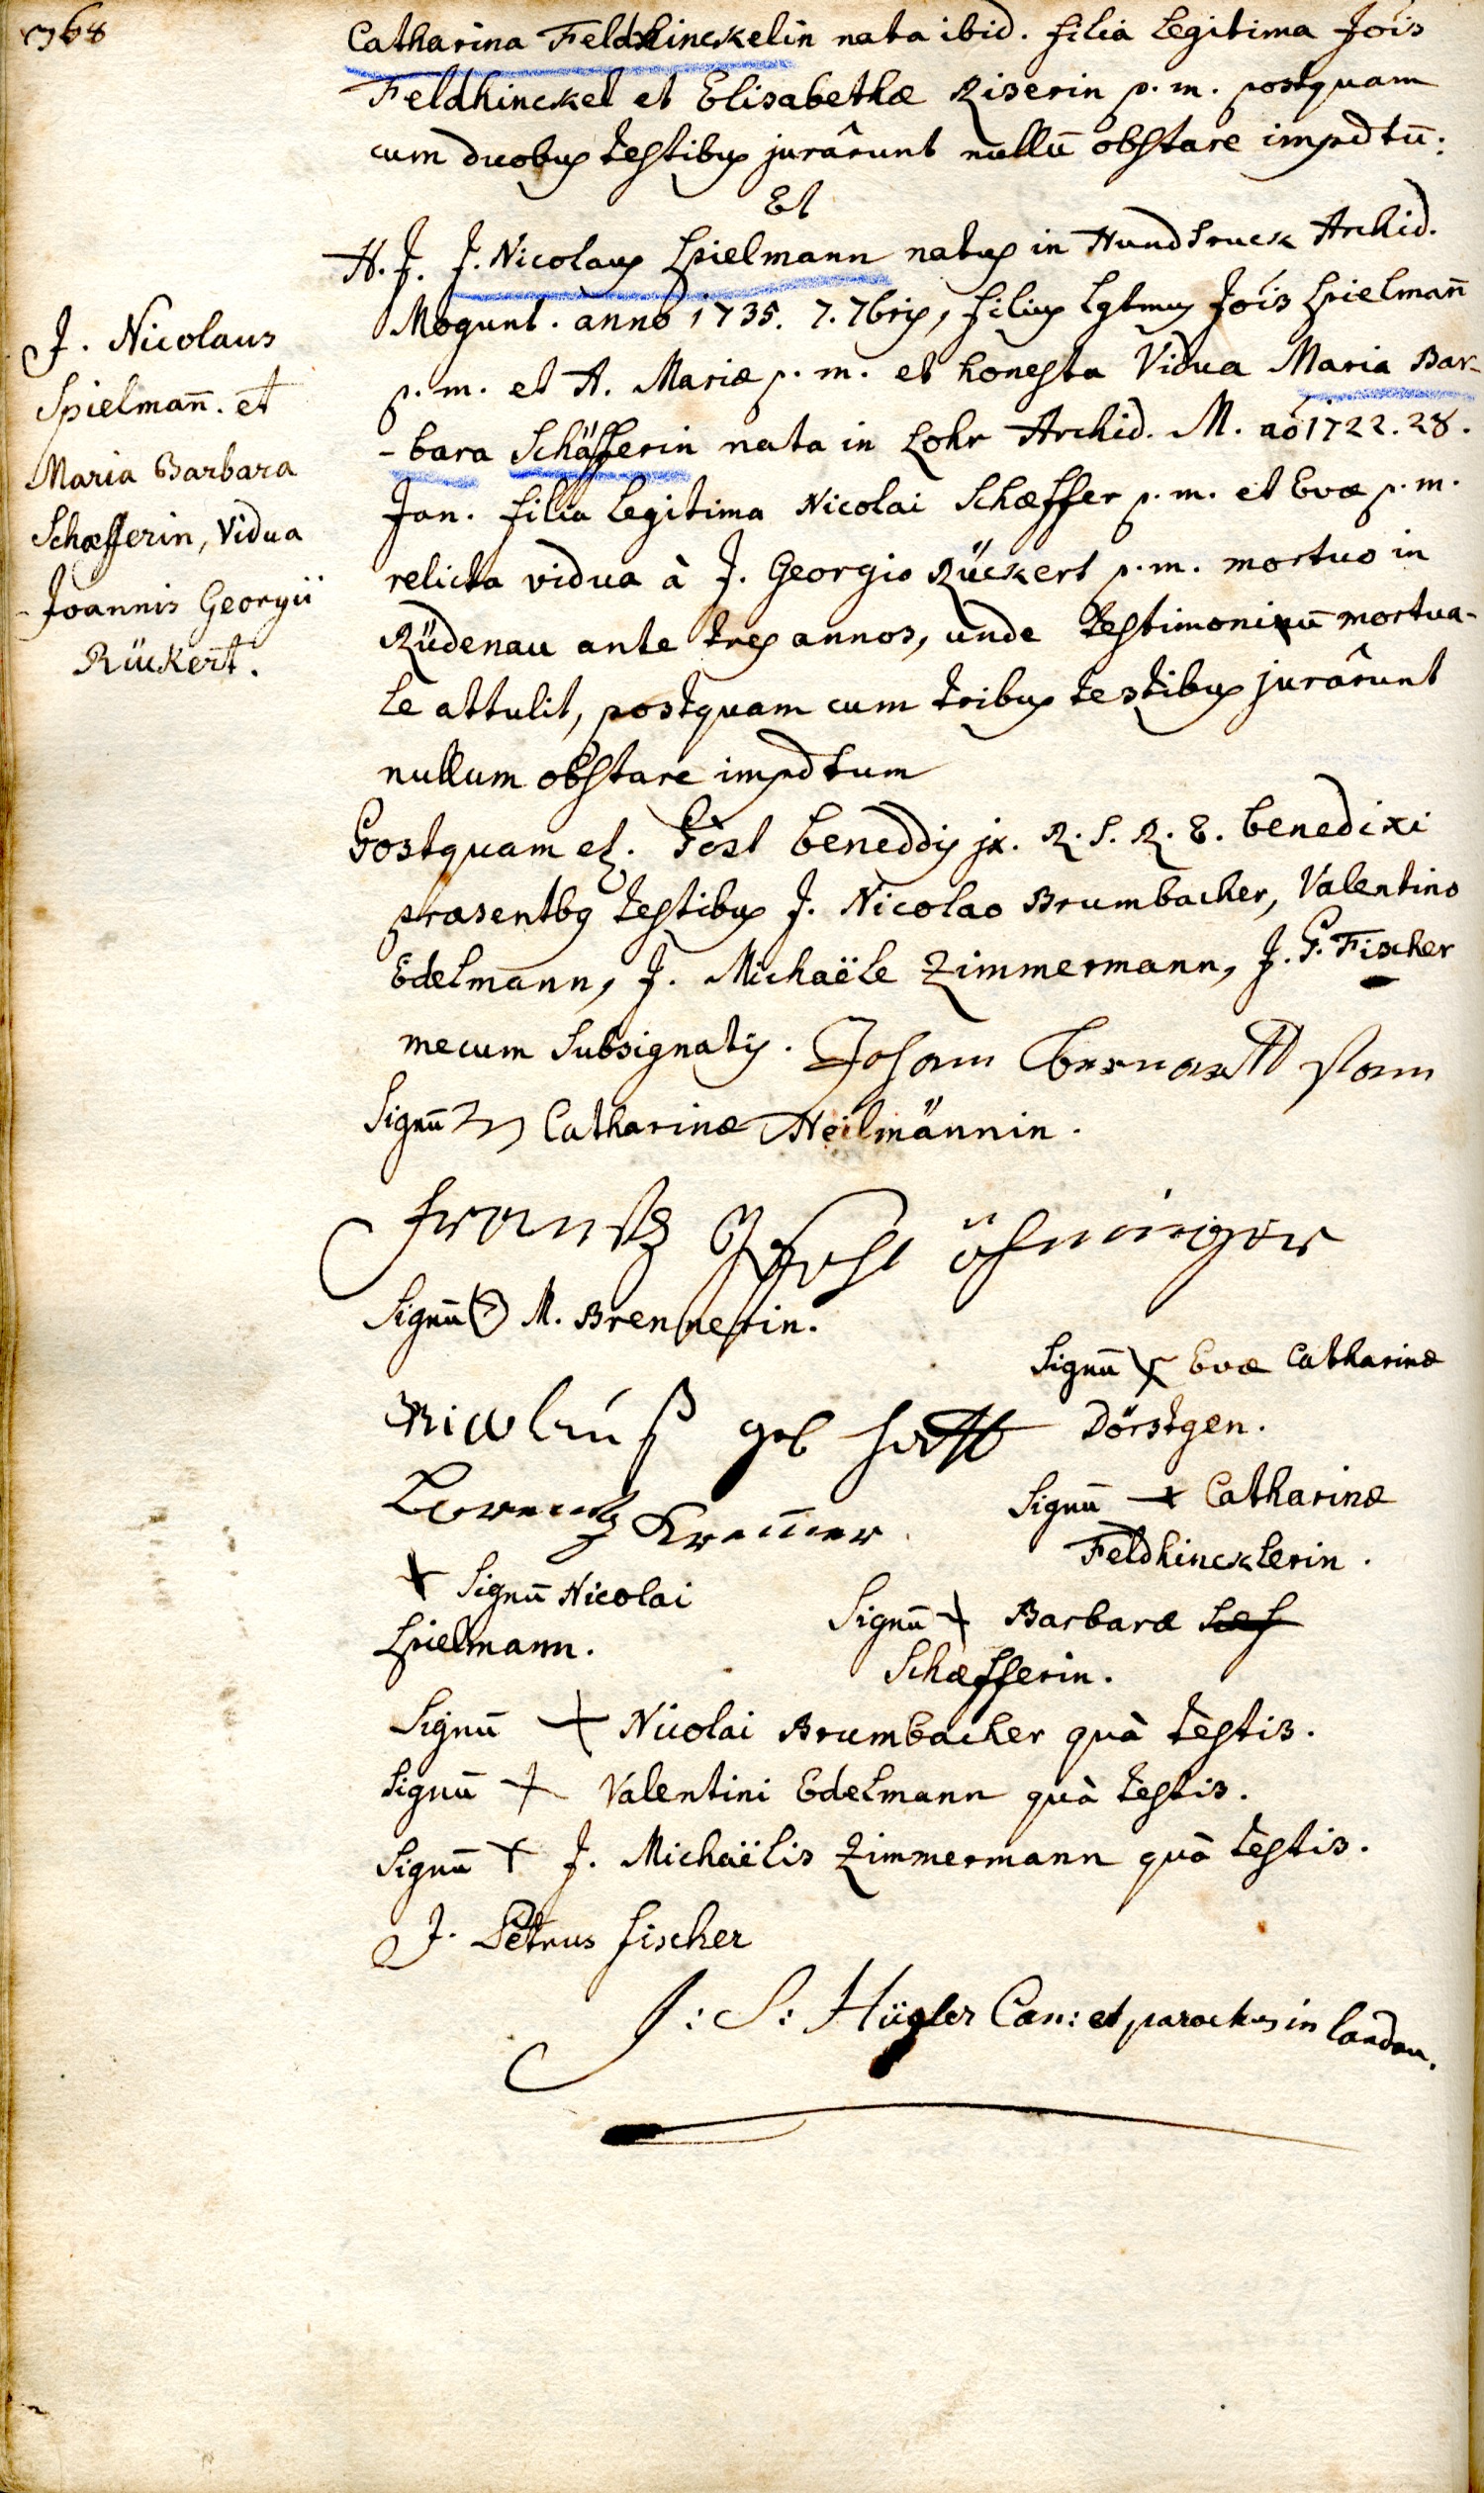 368
Catharina Feldhinckelin nata ibid. filia legitima Jois
Feldhinckel et Elisabethæ Riserin p. m. postquam
cum duobus testibus jurârunt nullū obstare impdtū:
Et
H. J. J. Nicolaus Spielmann natus in Hundsruck Archid.
Mogunt. anno 1735. 7. 7bris, filius lgtmus Jois Spielman̄
p. m. et A. Mariæ p. m. et honesta Vidua Maria Bar-
-bara Schäfferin nata in Lohr Archid. M. aō 1722. 28.
Jan. filia legitima Nicolai Schæffer p. m. et Evæ p. m.
relicta vidua à J. Georgio Rückert p. m. mortuo in
Rüdenau ante tres annos, unde testimoniū mortua-
le attulit, postquam cum tribus testibus jurârunt
nullum obstare impdtum
J. Nicolaus
Spielman̄. et
Maria Barbara
Schæfferin, Vidua
Joannis Georgii
Rückert.
Postquam et. Fost beneddis jx. R. S. R. E. benedixi
præsentbg testibus J. Nicolao Brumbacher, Valentino
Edelmann, J. Michaële Zimmermann, J. P. Fischer
mecum subsignatis. Johann
Signū Catharinæ Heilmännin.
Frantz
Signū M. Brennerin.
Signū Evæ Catharinæ
Nicolauß
Dörstgen.
Lorentz Kremer
Signū + Catharinæ
Feldhincklerin.
+ Signū Nicolai
Spielmann.
Signū + Barbaræ
Schæfferin.
Signū + Nicolai Brumbacher quà testis.
Signū + Valentini Edelmann quà testis.
Signū + J. Michaëlis Zimmermann quà testis.
J. Petrus Fischer
J: S: Hügler Can: et parochus in landau.